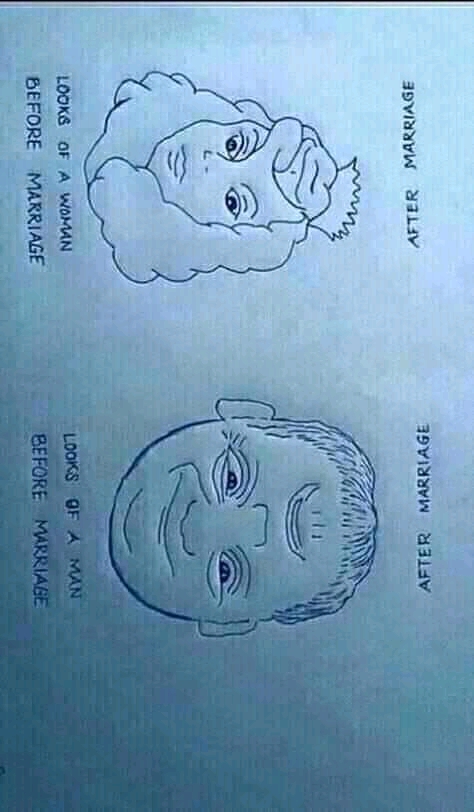 LOOKS OF A WOMAN
BEFORE MARRIAGE
AFTER MARRIAGE
LOOKS OF A MAN
BEFORE MARRIAGE
AFTER MARRIAGE